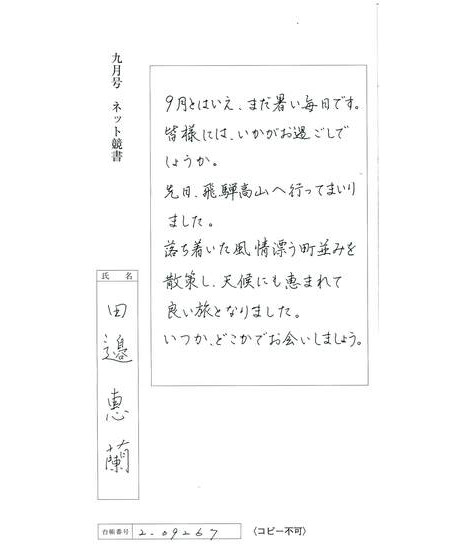 九月号 ネット競書
9月とはいえ、まだ暑い毎日です。
皆様には、いかがお過ごしで
しょうか。
先日、飛騨高山へ行ってまいり
ました。
落ち着いた風情漂う町並みを
散策し、天候にも恵まれて
良い旅となりました。
いつか、どこかでお会いしましょう。
氏名
田邉恵蘭
台帳番号 2-09267
〈コピー不可〉